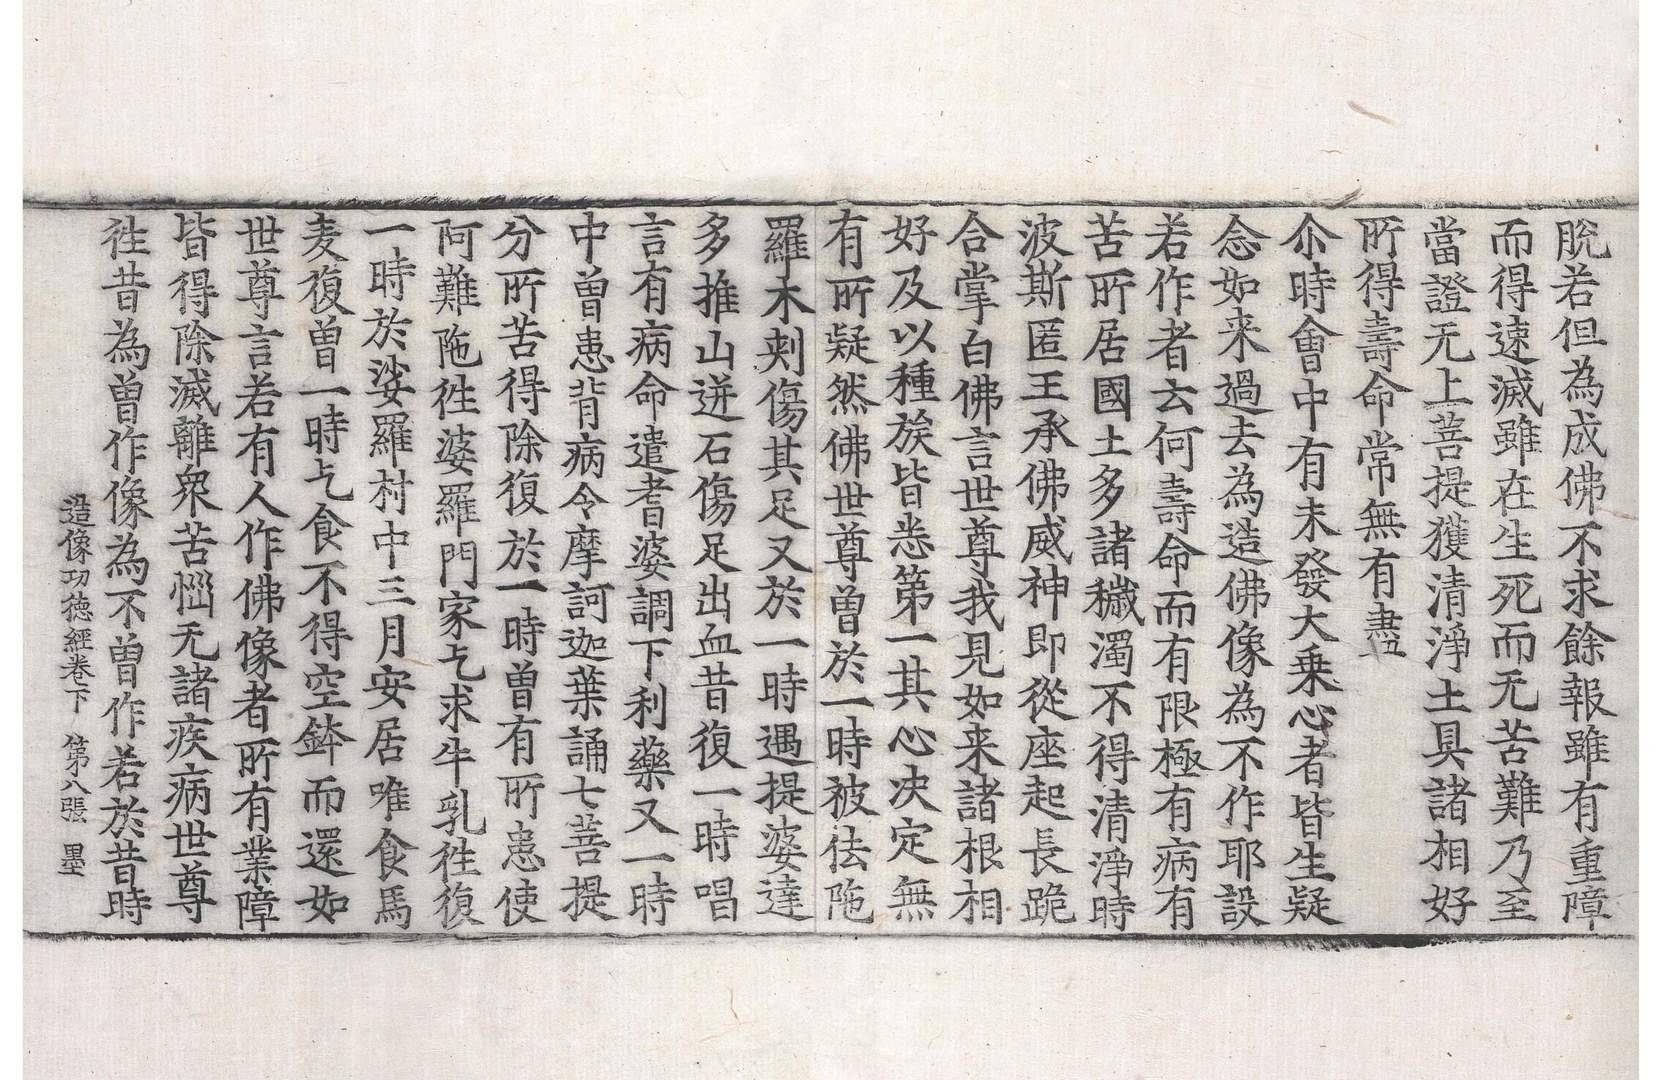 脫若但為成佛不求餘報雖有重障
而得速滅雖在生死而无苦難乃至
當證无上菩提獲清淨土具諸相好
所得壽命常無有盡
尒時會中有未發大乗心者皆生疑
念如来過去為造佛像為不作耶設
若作者云何壽命而有限極有病有
苦所居國土多諸穢濁不得清淨時
波斯匿王承佛威神即從座起長跪
合掌白佛言世尊我見如来諸根相
好及以種族皆悉第一其心决定無
有所疑然佛世尊曽於一時被佉陁
羅木刾傷其足又於一時遇提婆達
多推山迸石傷足出血昔復一時唱
言有病命遣耆婆調下利藥又一時
中曽患背病令摩訶迦葉誦七菩提
分所苦得除復於一時曽有所患使
阿難陁徃婆羅門家乞求牛乳徃復
一時於娑羅村中三月安居唯食馬
麦復曽一時乞食不得空鉢而還如
世尊言若有人作佛像者所有業障
皆得除滅離衆苦惱无諸疾病世尊
徃昔為曽作像為不曽作若於昔時
造像功徳經卷下　第八張　墨